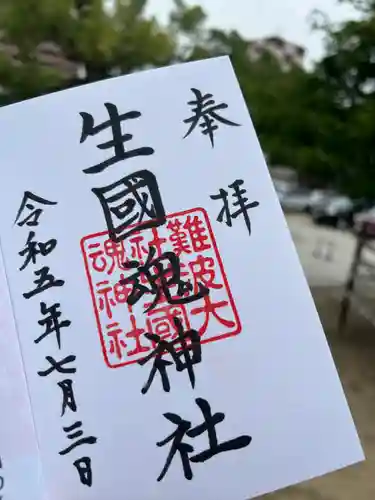 奉拝
生國魂神社
令和五年七月三日
難波大
社生國
魂神社